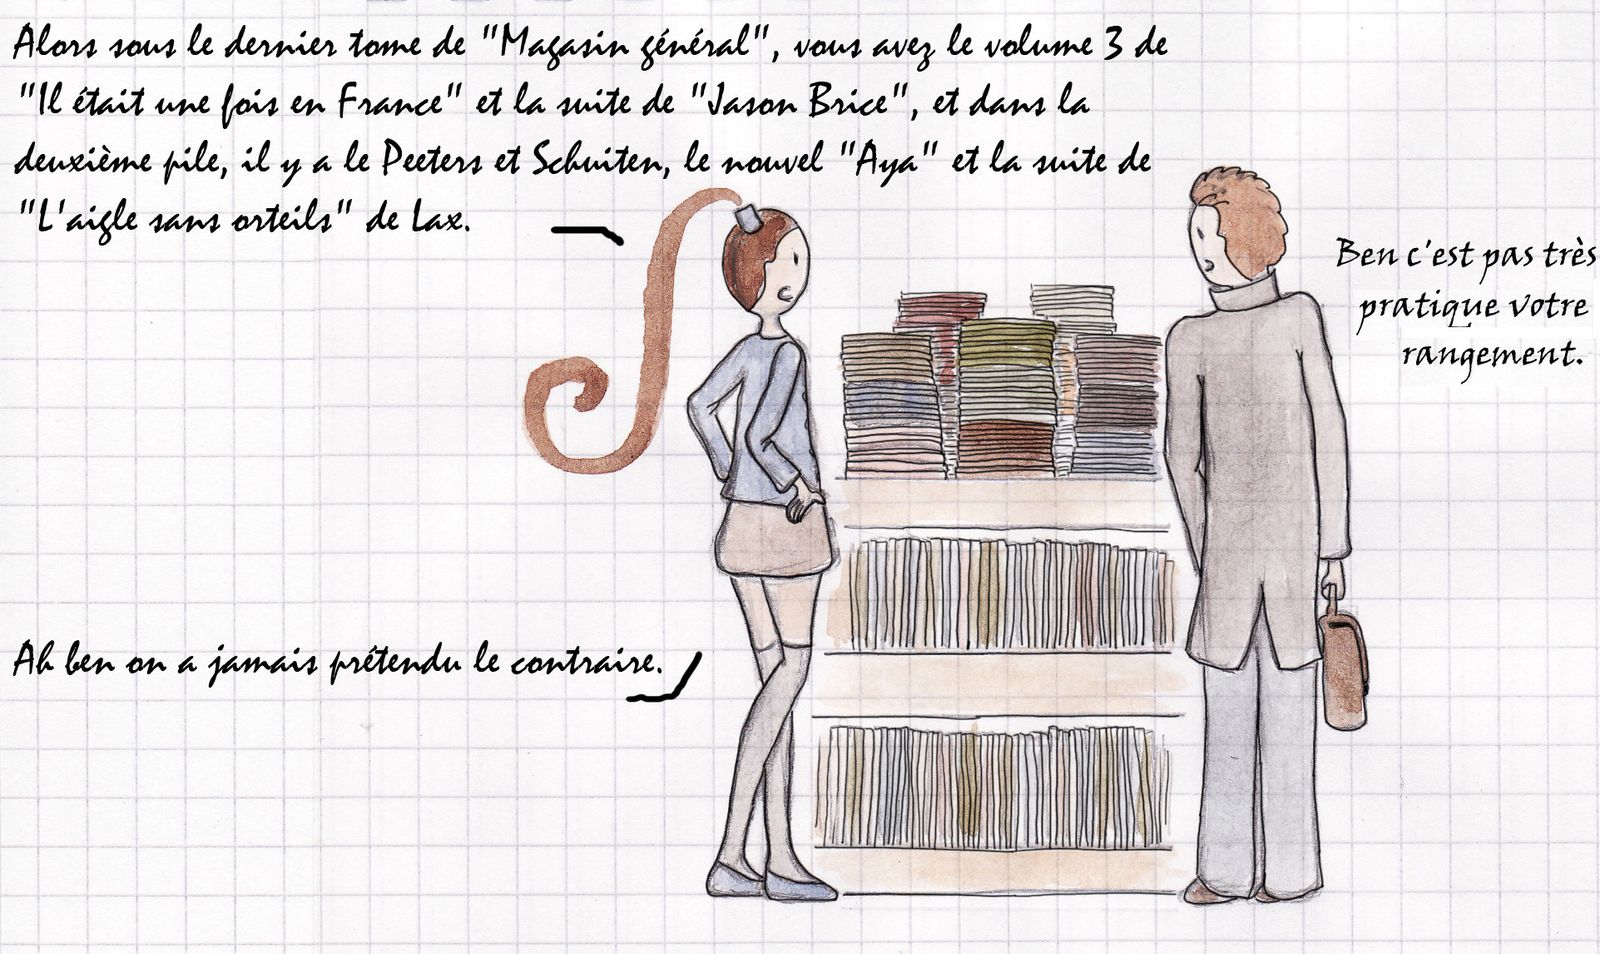 Alors sous le dernier tome de "Magasin général", vous avez le volume 3 de
"Il était une fois en France" et la suite de "Jason Brice", et dans la
deuxième pile, il y a le Peeters et Schuiten, le nouvel "Aya" et la suite de
"L'aigle sans orteils" de Lax.
Ben c'est pas très
pratique votre
rangement.
Ah ben on a jamais prétendu le contraire.